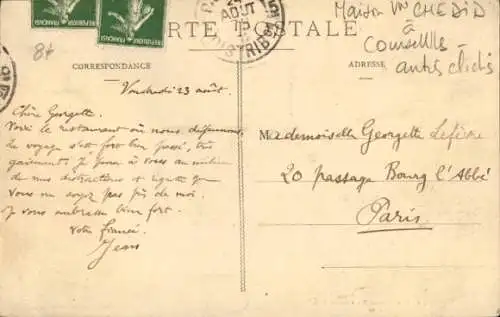 CARTE POSTALE
Maison Vve CHEDID
à
Courseilles -
autres clichés
CORRESPONDANCE
ADRESSE
Vendredi 23 août.
Chère Georgette
Voici le restaurant où nous déjeunons,
Le voyage s'est fort bien passé, très
gaiement. Je pense à vous au milieu
de mes distractions et regrette que
vous ne soyez pas près de moi.
Je vous embrasse bien fort.
Votre fiancé.
Jean
Mademoiselle Georgette Lefèvre
20 passage Bourg l'Abbé
Paris
AOUT
DISTRIBUTION
REPUBLIQUE FRANÇAISE